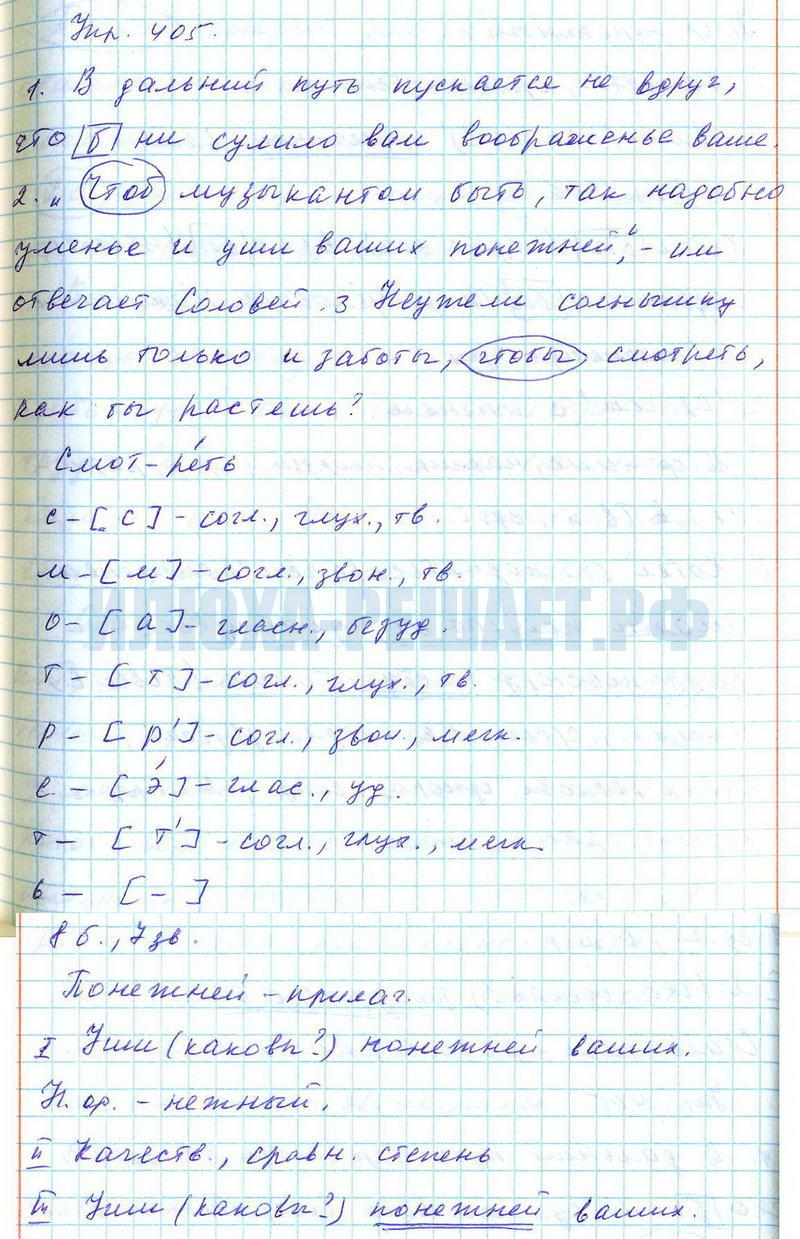 Упр. 405.
1. В дальний путь пускается не вдруг,
что б ни сулило вам воображенье ваше.
2. "Чтоб музыкантом быть, так надобно
уменье и уши ваших понежней", - им
отвечает Соловей. 3 Неужели солнышку
лишь только и заботы, чтобы смотреть,
как ты растешь?
Смот-ре́ть
с - [с] - согл., глух., тв.
м - [м] - согл., звон., тв.
ИЛЮХА-РЕШАЕТ.РФ
о - [а] - гласн., безуд.
т - [т] - согл., глух., тв.
р - [р'] - согл., звон., мягк.
е - [э́] - глас., уд.
т - [т'] - согл., глух., мягк.
ь - [-]
8 б., 7 зв.
Понежней - прилаг.
I Уши (каковы?) понежней ваших.
Н. ф. - нежный.
II Качеств., сравн. степень
III Уши (каковы?) понежней ваших.